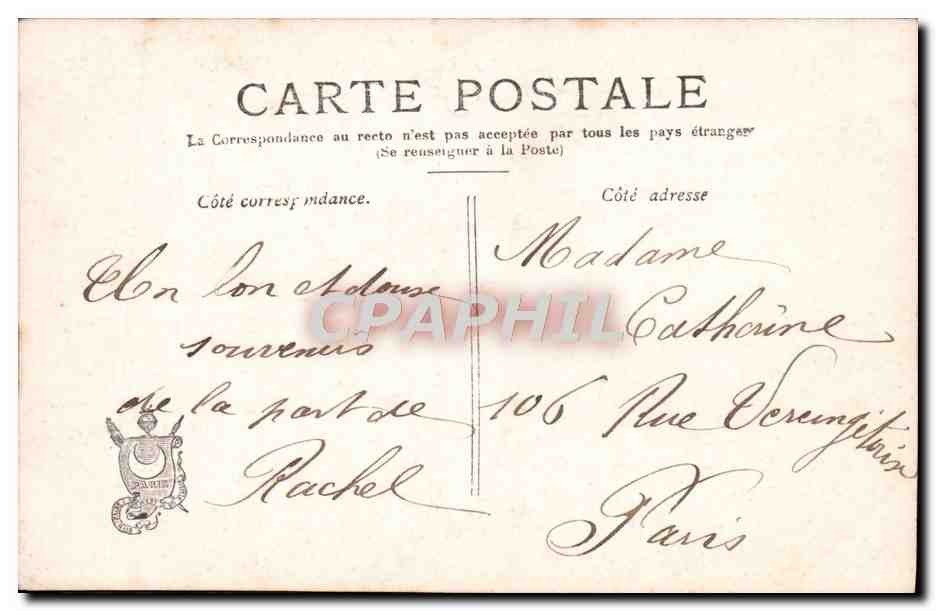 CARTE POSTALE
La Correspondance au recto n'est pas acceptée par tous les pays étrangers
(Se renseigner à la Poste)
Côté correspondance.
Un bon et douse
souvenirs
de la part de
Rachel
PARIS
Côté adresse
Madame
Catherine
106 Rue Vercingétorix
Paris
CPAPHIL